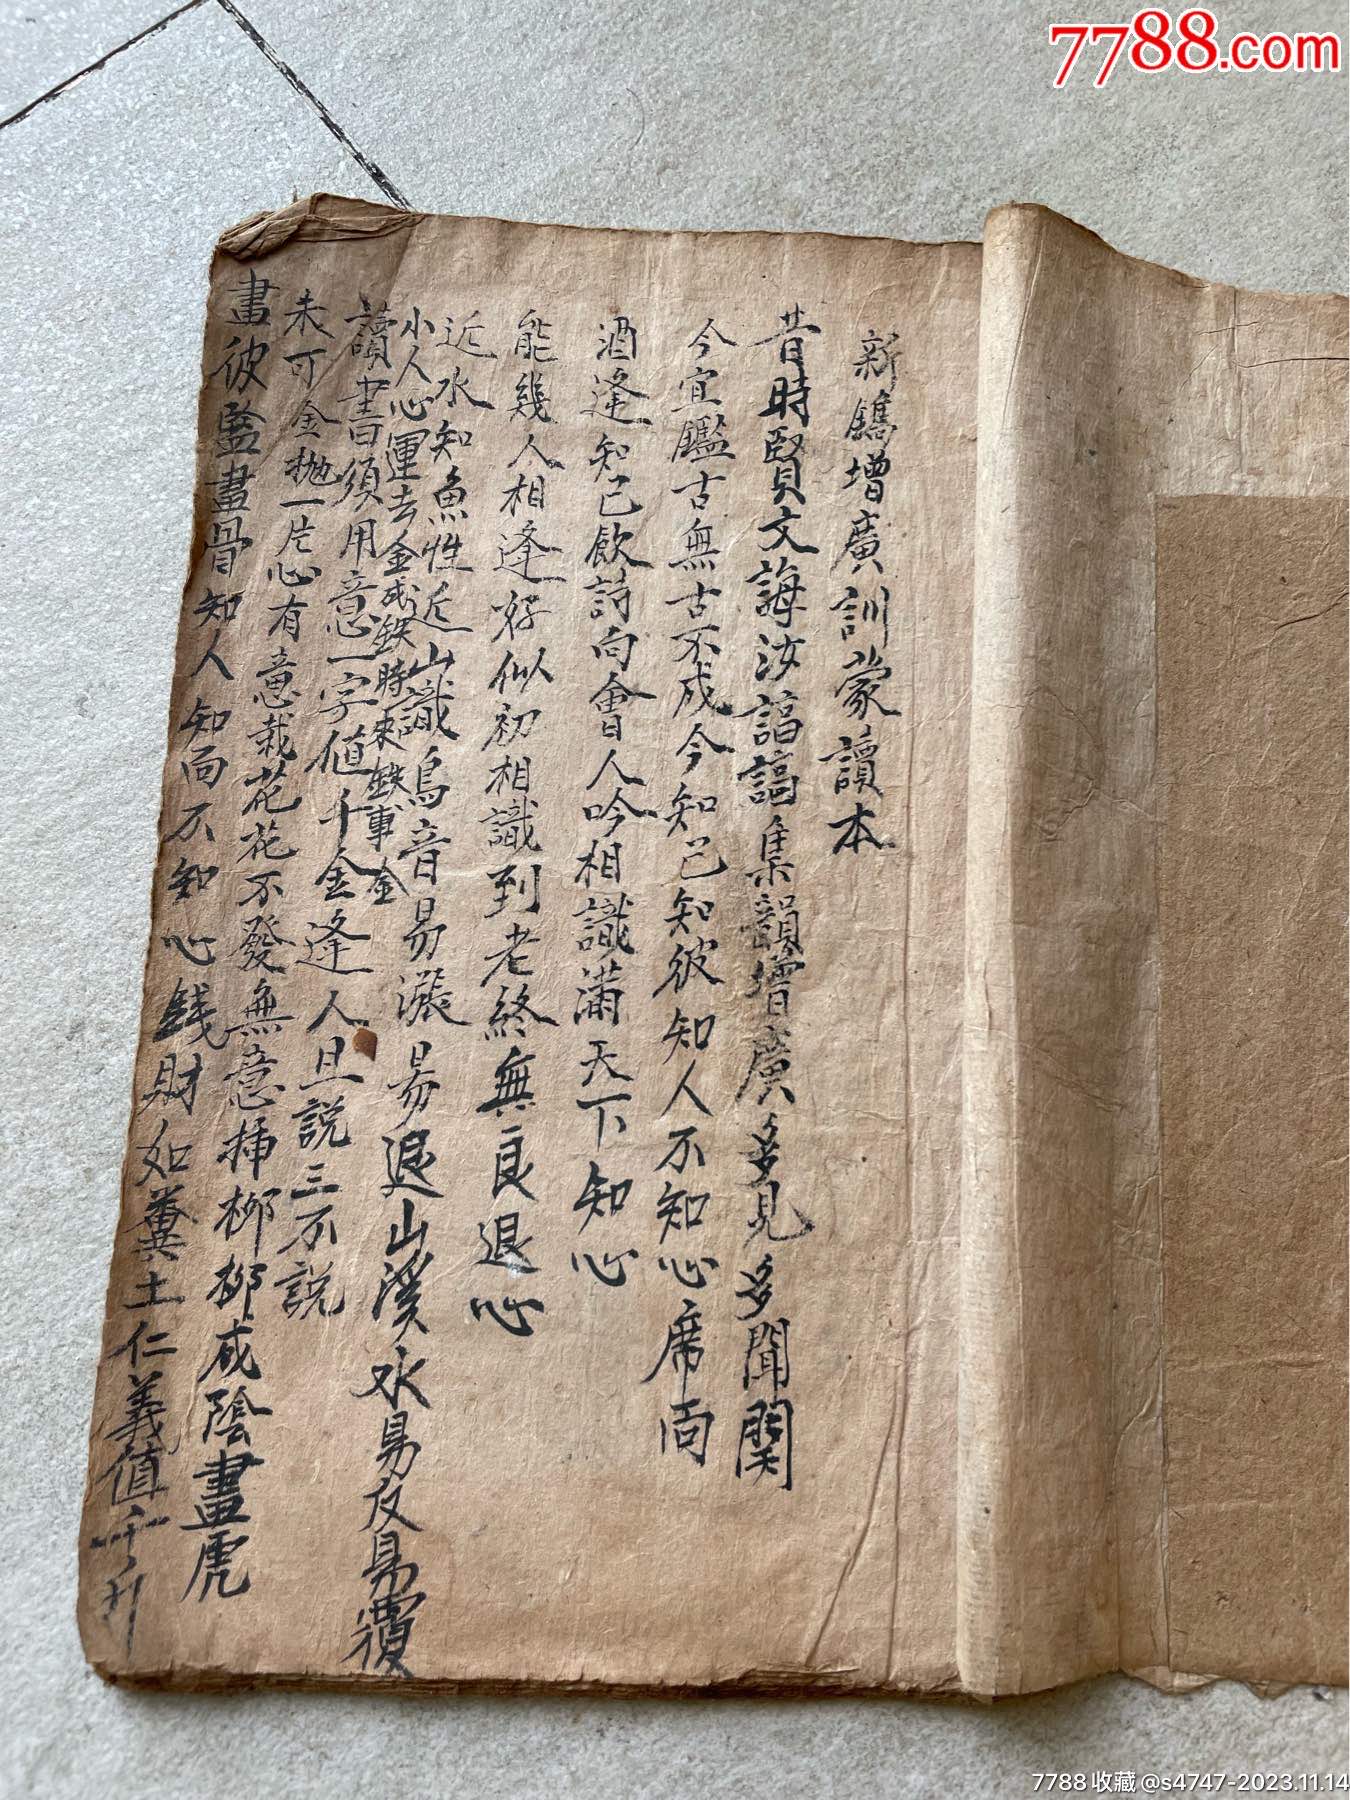 7788.com
新鐫增廣訓蒙讀本
昔時賢文誨汝諄諄集韻增廣多見多聞関
今宜鑑古無古不成今知己知彼知人不知心席面
酒逢知己飲詩向會人吟相識滿天下知心
能幾人相逢好似初相識到老終無良退心
近水知魚性近山識鳥音易漲易退山溪水易反易覆
小人心運去金成鉄時來鉄事金
讀書須用意一字值千金逢人且說三不說
未可全拋一片心有意栽花花不發無意挿栁栁成陰畫虎
畫彼監畫骨知人知面不知心錢財如糞土仁義值千
7788收藏@s4747-2023.11.14